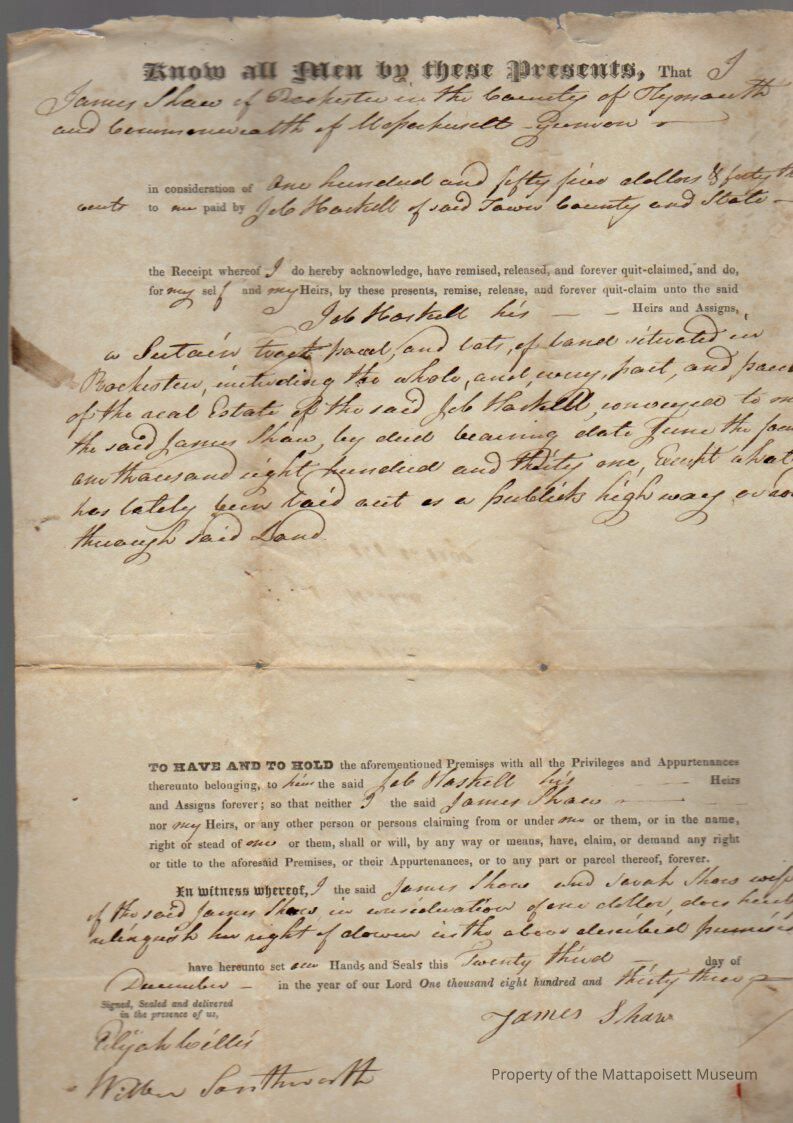 Know all Men by these Presents, That I
James Shaw of Rochester in the County of Plymouth
and Commonwealth of
in consideration of One hundred and fifty five dollars & forty
cents to me paid by Job Haskell of said Town County and State
the Receipt whereof I do hereby acknowledge, have remised, released, and forever quit-claimed, and do,
for my self and my Heirs, by these presents, remise, release, and forever quit-claim unto the said
Job Haskell his Heirs and Assigns,
a Sertain tract parcel, and lots, of land situated in
Rochester, including the whole, and, every, part, and
of the real Estate of the said Job Haskell, conveyed to
the said James Shaw, by deed bearing date June the
one thousand eight hundred and thirty one, Except what
has lately been laid out as a publick high way
through said Land
TO HAVE AND TO HOLD the aforementioned Premises with all the Privileges and Appurtenances
thereunto belonging, to him the said Job Haskell his Heirs
and Assigns forever; so that neither I the said James Shaw
nor my Heirs, or any other person or persons claiming from or under me or them, or in the name,
right or stead of me or them, shall or will, by any way or means, have, claim, or demand any right
or title to the aforesaid Premises, or their Appurtenances, or to any part or parcel thereof, forever.
In witness whereof, I the said James Shaw and Sarah Shaw wife
of the said James Shaw, in consideration of one dollar, does
relinquish her right of dower in the above described
have hereunto set our Hands and Seals this Twenty third day of
December in the year of our Lord One thousand eight hundred and thirty three
Signed, Sealed and delivered
in the presence of us,
James Shaw
Elijah Willis
Southworth
Property of the Mattapoisett Museum